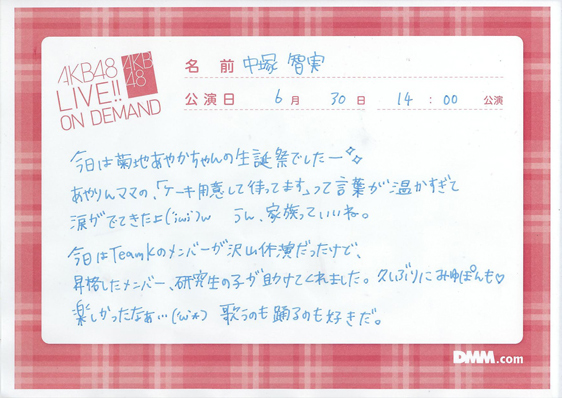 AKB48
LIVE!!
ON DEMAND
AKB
48
名前 中塚 智実
公演日 6月 30日 14:00 公演
今日は菊地あやかちゃんの生誕祭でしたー✧
あやりんママの、「ケーキ用意して待ってます」って言葉が温かすぎて
涙がでてきたよ(;ω;)w うん、家族っていいね。
今日はTeamKのメンバーが沢山休演だったけど、
昇格したメンバー、研究生の子が助けてくれました。久しぶりにみゆぽんも♡
楽しかったなぁ…(・ω・*) 歌うのも踊るのも好きだ。
DMM.com